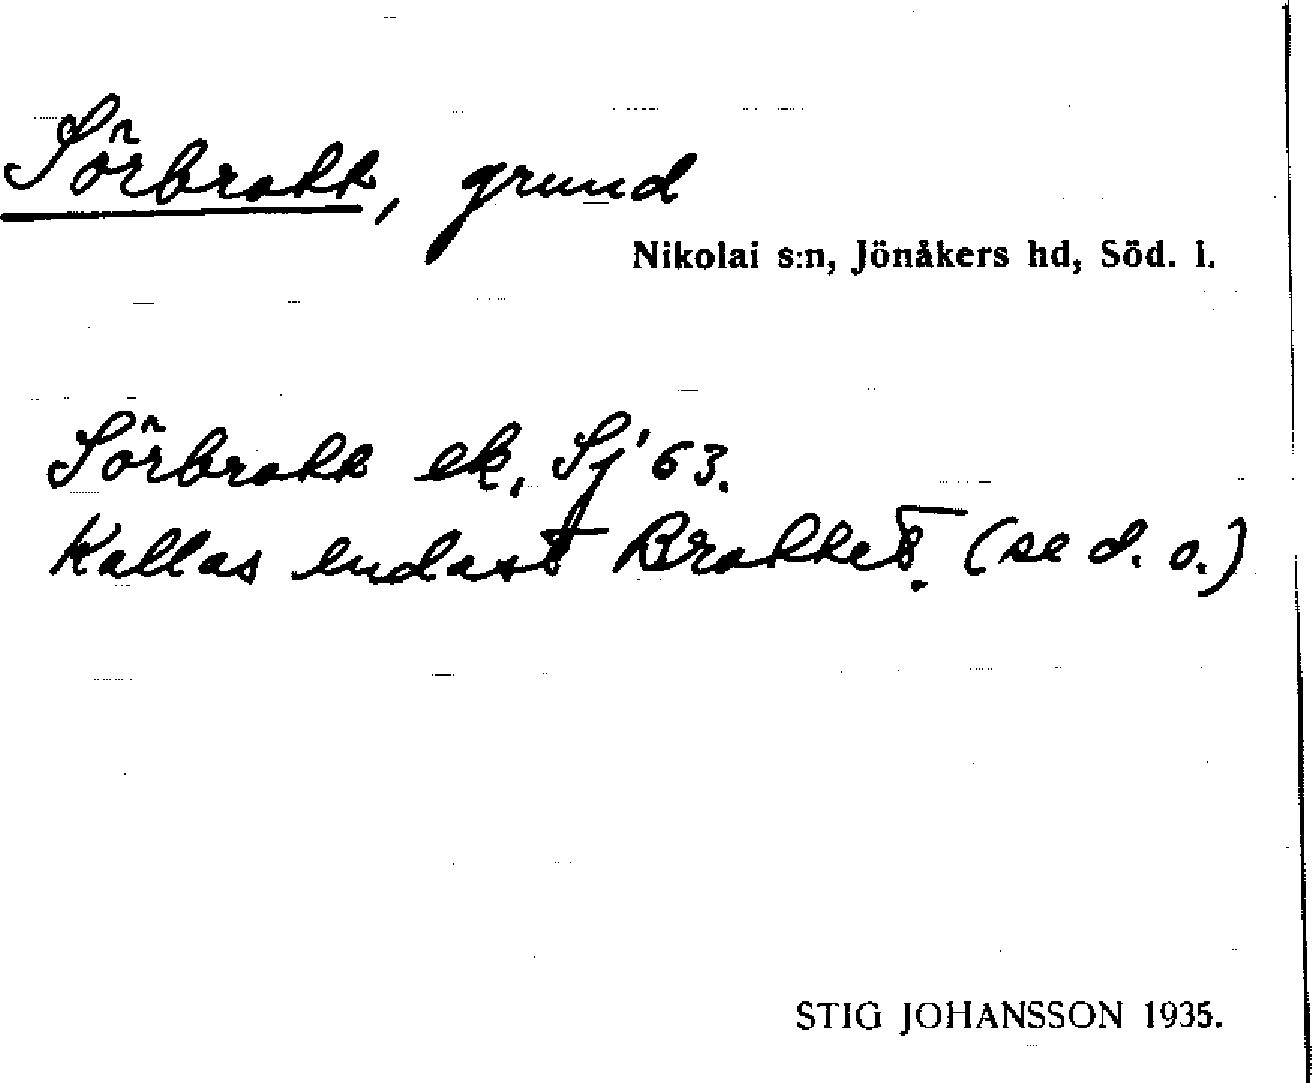 Sörbrokk, grund
Nikolai s:n, Jönåkers hd, Söd. l.
Sörbrokk ek. Sj' 63.
Kallas endast Brokket (se d. o.)
STIG JOHANSSON 1935.